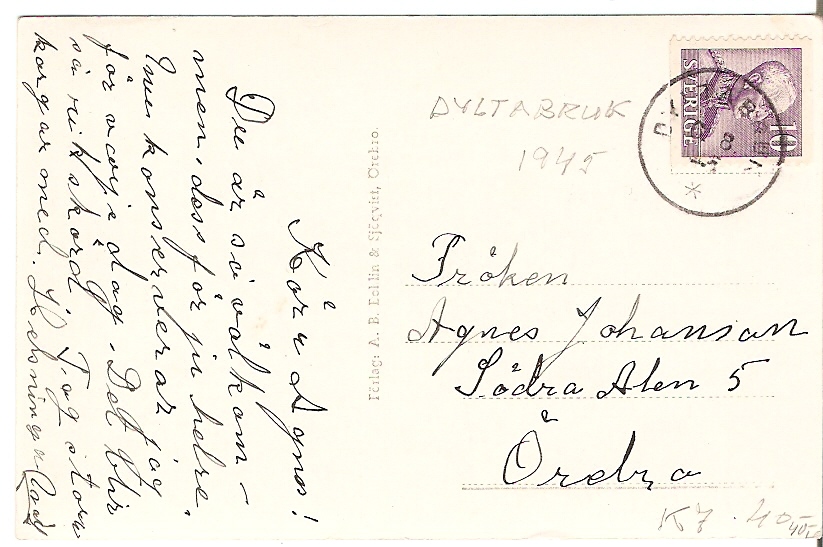 Kära Agnes!
Du är så välkom-
men, dess för ju helre.
Inu konserverar jag
för varje dag. Det blir
så rik skörd. Tag stora
korgar med. Hälsningar
Förlag: A. B. Lollin & Sjöqvist, Örebro.
DYLTABRUK
1945
SVERIGE
10
Fröken
Agnes Johanson
Södra Alen 5
Örebro
K7 - 40